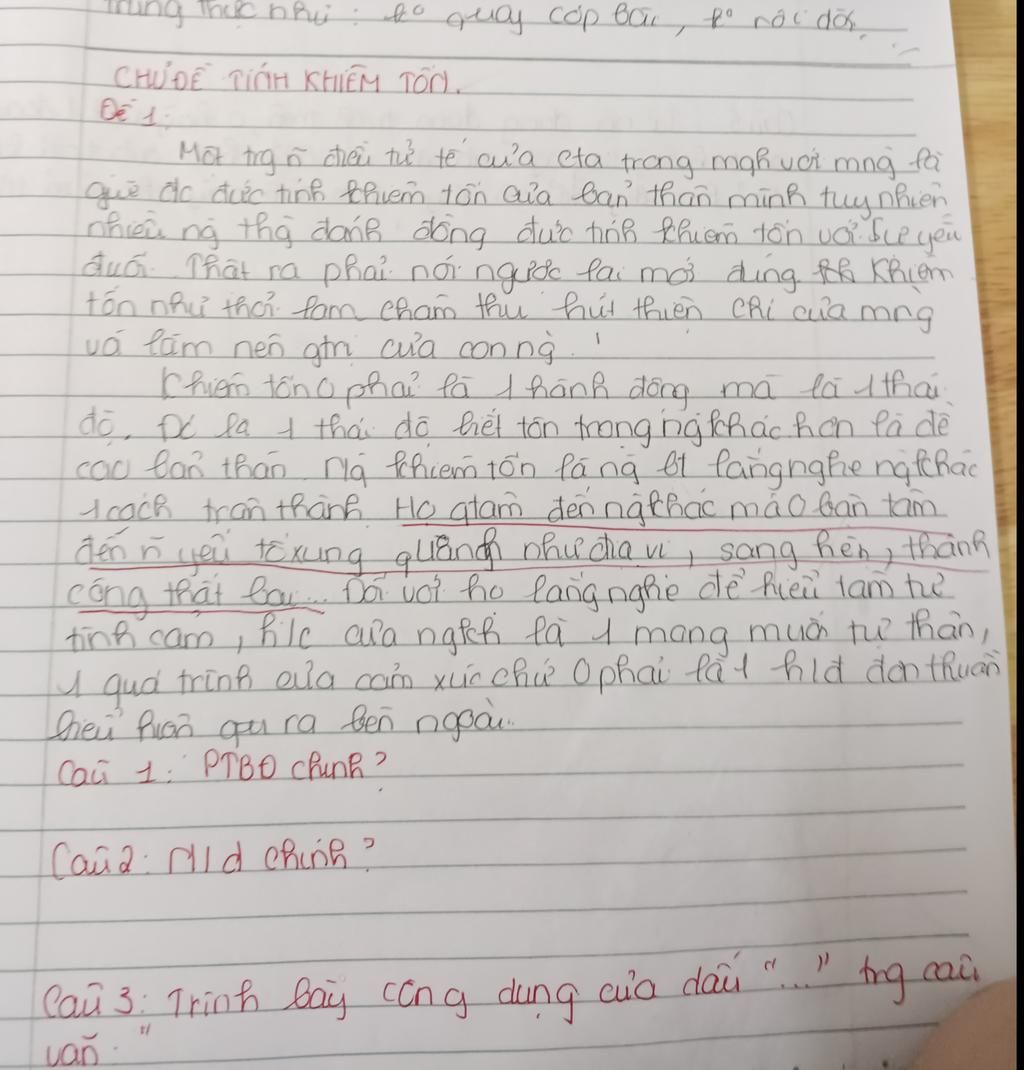 trung thực như: ko quay cóp bài, ko nói dối.
CHỦ ĐỀ TÍNH KHIÊM TỐN.
Đề 1:
Một trg n điều tử tế của cta trong mqh với mng là
đc đức tính khiêm tốn của bản thân mình tuy nhiên
nhiều ng thg đánh đồng đức tính khiêm tốn với sự yếu
đuối. Thật ra phải nói ngược lại mới đúng Khiêm
tốn như thỏi lam châm thu hút thiện chí của mng
và làm nên gtrị của con ng.
Khiêm tốn 0 phải là 1 hành động mà là 1 thái
độ. Đc là 1 thái độ biết tôn trọng ng khác hơn là đề
cao bản thân. Ng khiêm tốn là ng bt lắng nghe ng khác
1 cách trân thành. Họ qtâm đến ng khác mà 0 bận tâm
đến n yếu tố xung quanh như địa vị, sang hèn, thành
công thất bại... Đối với họ lắng nghe để hiểu tâm tư
tình cảm, h/c của ng kh là 1 mong muốn tự thân,
1 quá trình của cảm xúc chứ 0 phải là 1 h/đ đơn thuần
biểu hiện qu ra bên ngoài.
Câu 1: PTBĐ chính?
Câu 2: N/d chính?
Câu 3: Trình bày công dụng của dấu "..." trg câu
văn. "